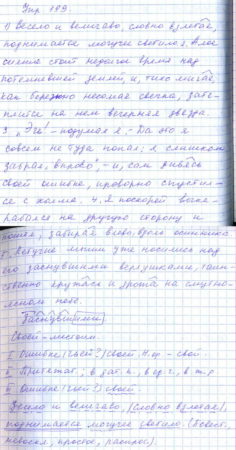 Упр. 189.
1) Весело и величаво, словно взлетая,
поднимается могучее светило. 2. Алое
сияние стоит недолгое время над
потемневшей землёй, и, тихо мигая,
как бережно несомая свечка, зате-
плится на нём вечерняя звезда.
3. "Эге! - подумал я. - Да это я
совсем не туда попал: я слишком
забрал вправо", - и, сам дивясь
своей ошибке, проворно спустил-
ся с холма. 4. Я поскорей вска-
рабкался на другую сторону и
пошёл, забирая влево, вдоль осинника
5. Летучие мыши уже носились над
его заснувшими верхушками, таин-
ственно кружась и дрожа на смутно-
ясном небе.
Заснувшими.
Своей - местоим.
I Ошибке (чьей?) своей. Н.ф. - свой.
II Притяжат.; в дат. п., в ед. ч., в ж. р
III Ошибке (чьей?) своей.
Весело и величаво, (словно взлетая),
поднимается могучее светило. (Повест.,
невоскл., простое, распрос.).